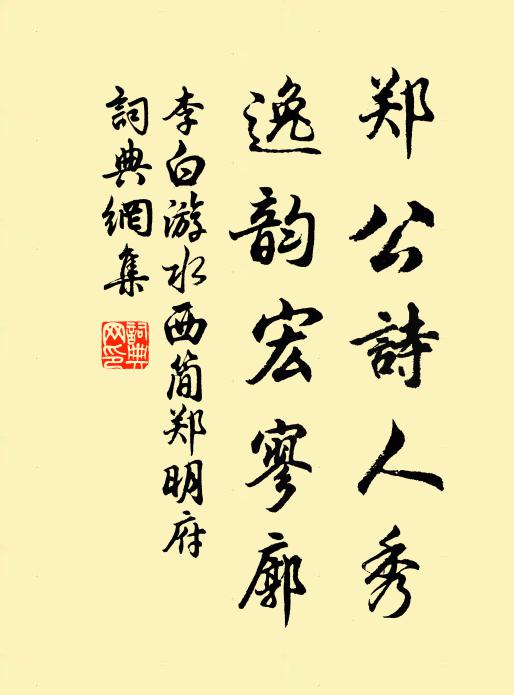 郑公詩人秀
逸韵宏寥廓
李白游水西简郑明府
詞典網集
詞典
网印